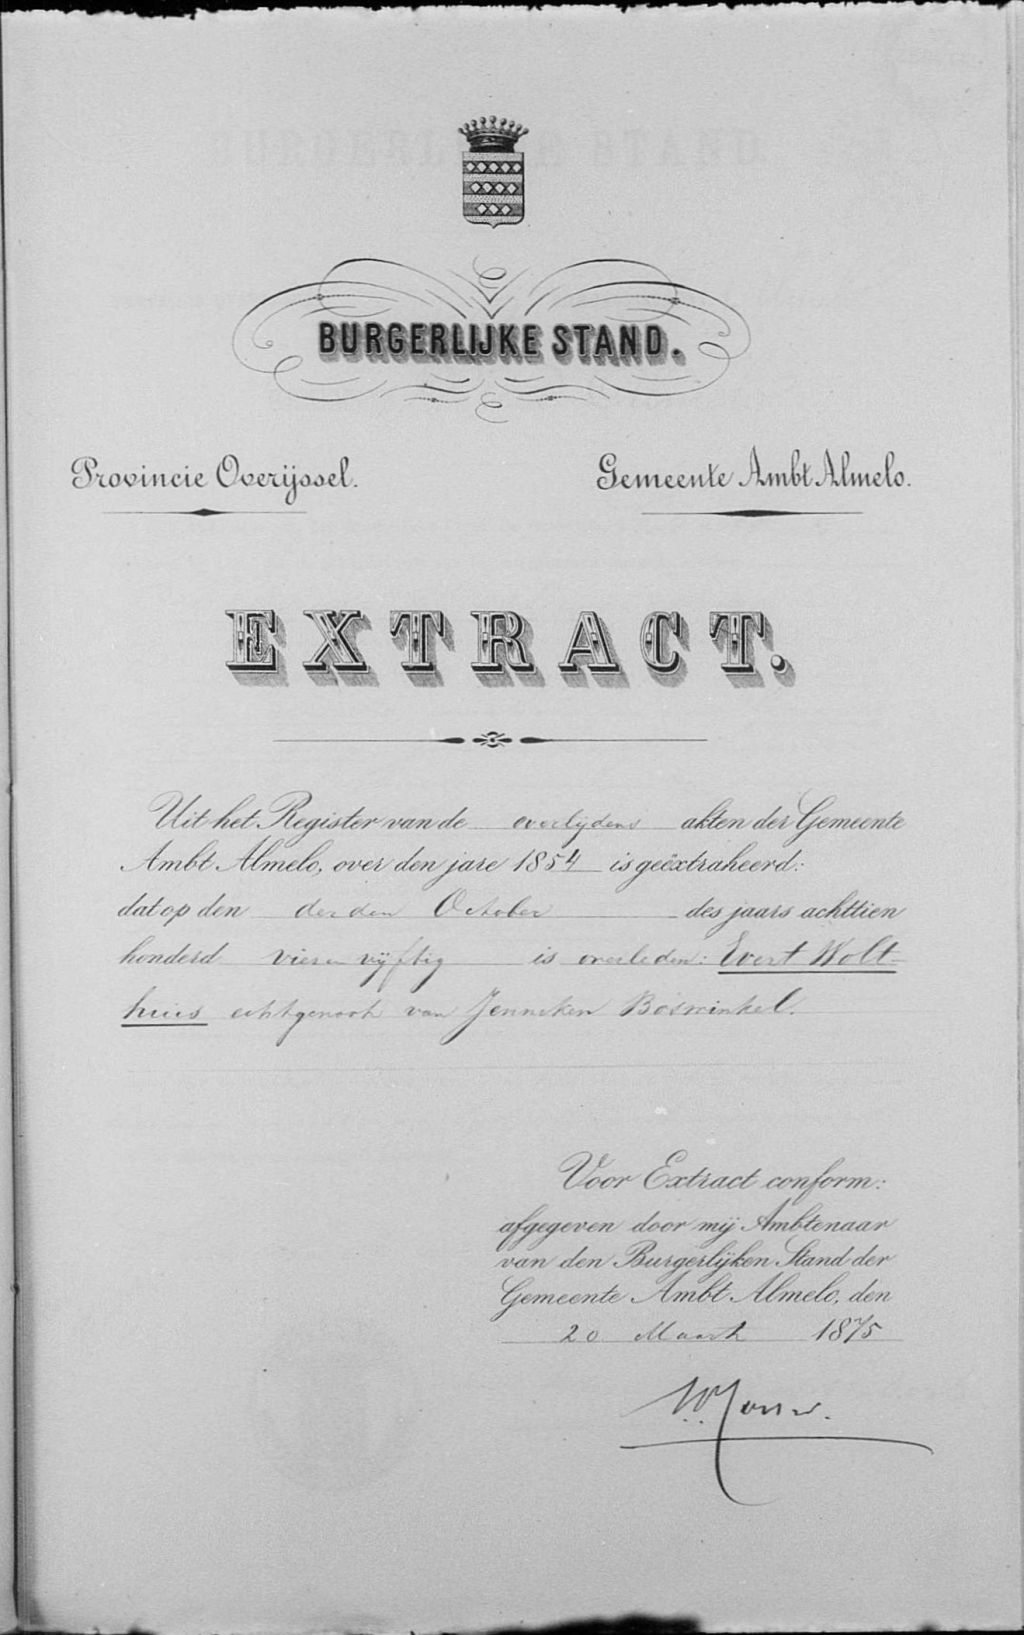 BURGERLIJKE STAND.
Provincie Overijssel.
Gemeente Ambt Almelo.
EXTRACT.
Uit het Register van de overlijdens akten der Gemeente
Ambt Almelo, over den jare 1854 is geëxtraheerd:
dat op den derden October des jaars achttien
honderd vier en vijftig is overleden: Evert Wolt-
huis echtgenoot van Jenneken Boswinkel.
Voor Extract conform:
afgegeven door mij Ambtenaar
van den Burgerlijken Stand der
Gemeente Ambt Almelo, den
20 Maart 1875